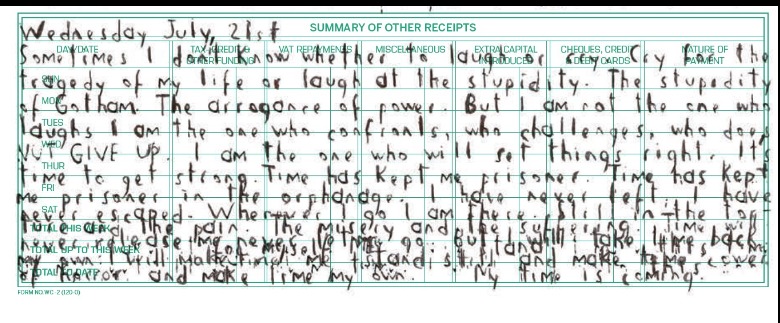 SUMMARY OF OTHER RECEIPTS
Wednesday July, 21st
DAY/DATE TAX CREDIT & OTHER FUNDING VAT REPAYMENTS MISCELLANEOUS EXTRA CAPITAL INTRODUCED CHEQUES, CREDIT & DEBIT CARDS NATURE OF PAYMENT
Sometimes I don't know whether to laugh or cry. Cry for the
SUN
tragedy of my life or laugh at the stupidity. The stupidity
MON
of Gotham. The arrogance of power. But I am not the one who
TUES
laughs I am the one who confronts, who challenges, who does
WED
NOT GIVE UP. I am the one who will set things right. It's
THUR
time to get strong. Time has kept me prisoner. Time has kept
FRI
me prisoner in the orphanage. I have never left. I have
SAT
never escaped. Wherever I go I am there. Still in the
TOTAL THIS WEEK
the pain. The misery and the suffering. Time will
TOTAL UP TO THIS WEEK
never release me never let me go. But I take time back
my own. I will make time stand still and make time
TOTAL TO DATE
and make time my own. My time is coming.
FORM NO.WC 2 (120.0)